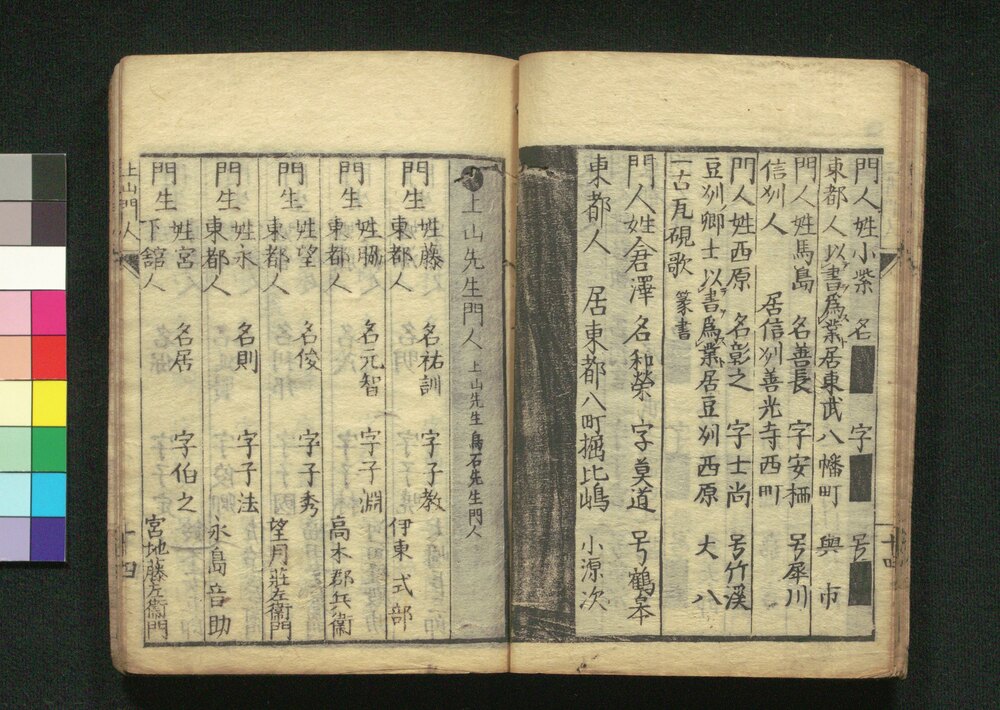 門人姓小柴 名■ 字■ 号■
東都人以書爲業居東武八幡町 與市
門人姓馬島 名善長 字安栖 号犀川
信刕人 居信刕善光寺西町
門人姓西原 名彰之 字士尚 号竹溪
豆刕郷士以書爲業居豆刕西原 大八
一古瓦硯歌 篆書
門人姓倉澤 名和榮 字莫道 号鶴夲
東都人 居東都八町堀比嶋 小源次
十四
上山先生門人 上山先生鳥石先生門人
門生 姓藤 名祐訓 字子教 伊東式部
東都人
門生 姓脇 名元智 字子淵 高木郡兵衞
東都人
門生 姓望 名俊 字子秀 望月莊左衞門
東都人
門生 姓永 名則 字子法 永島音助
東都人
門生 姓宮 名居 字伯之 宮地藤左衞門
下舘人
上山門人 十四